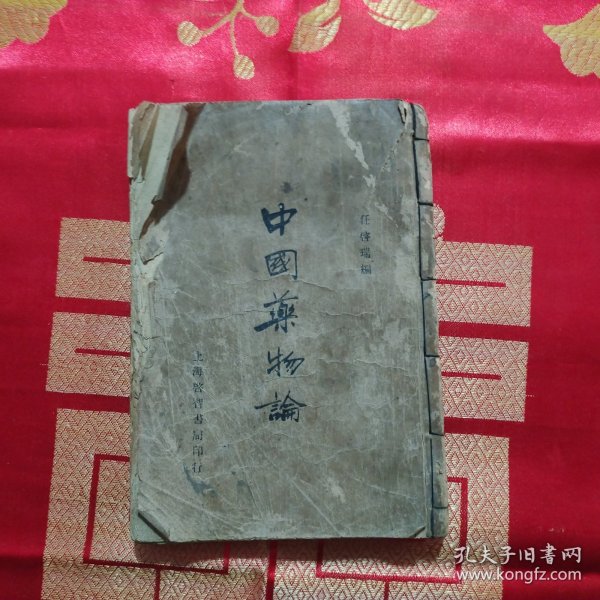 任啓瑞編
中國藥物論
上海啓智書局印行
孔夫子旧书网
www.kongfz.com